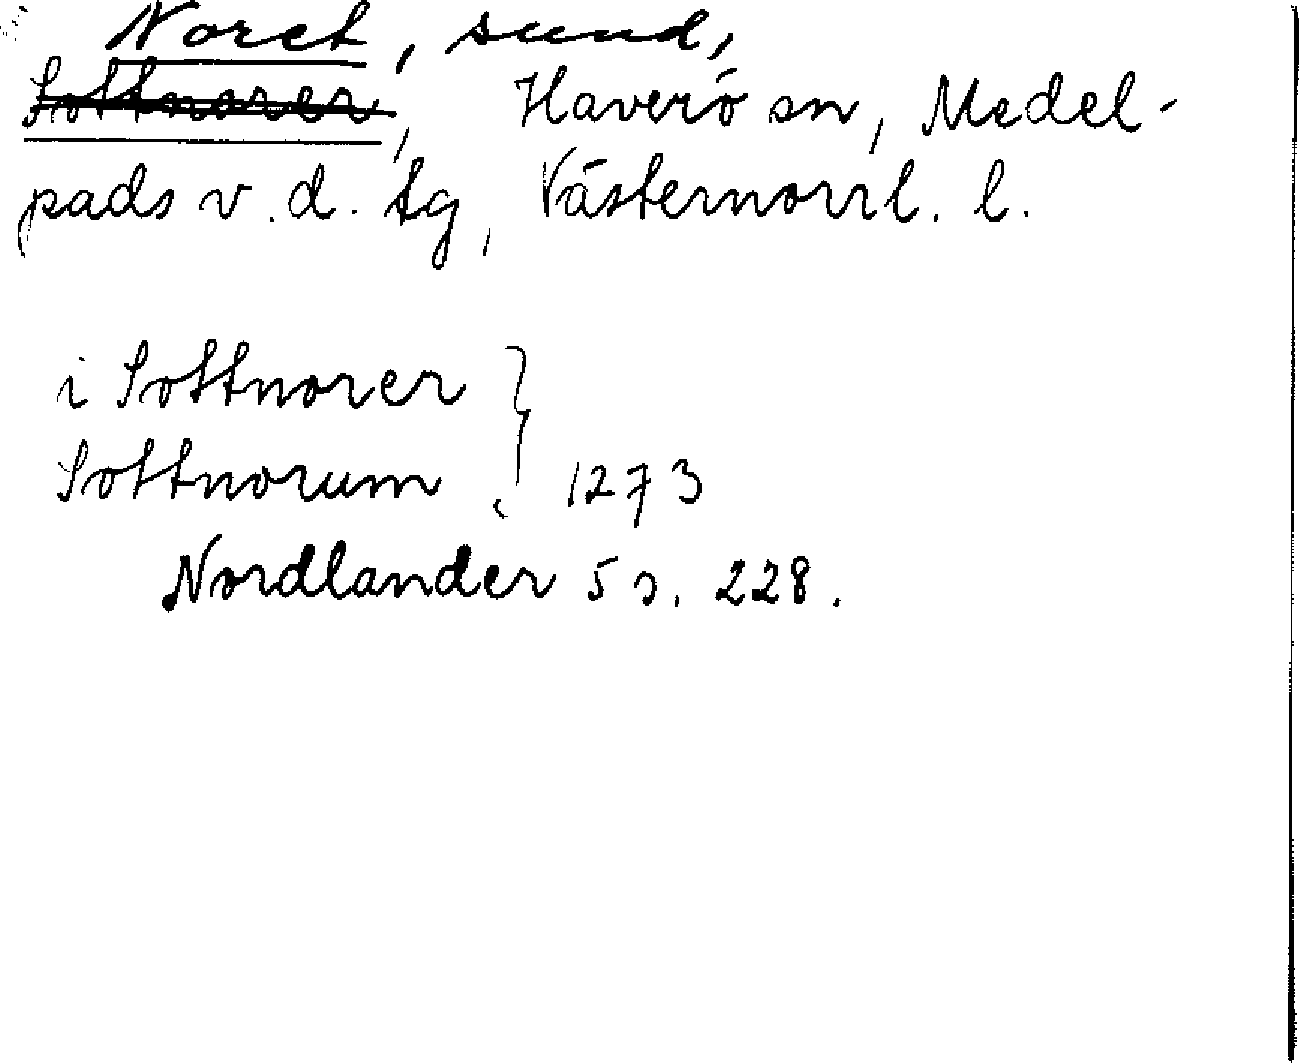 Noret, sund,
Sottnorer, Haverö sn, Medel-
pads v. d. tg, Västernorrl. l.
i Sottnorer }
Sottnorum } 1273
Nordlander 5 s. 228.